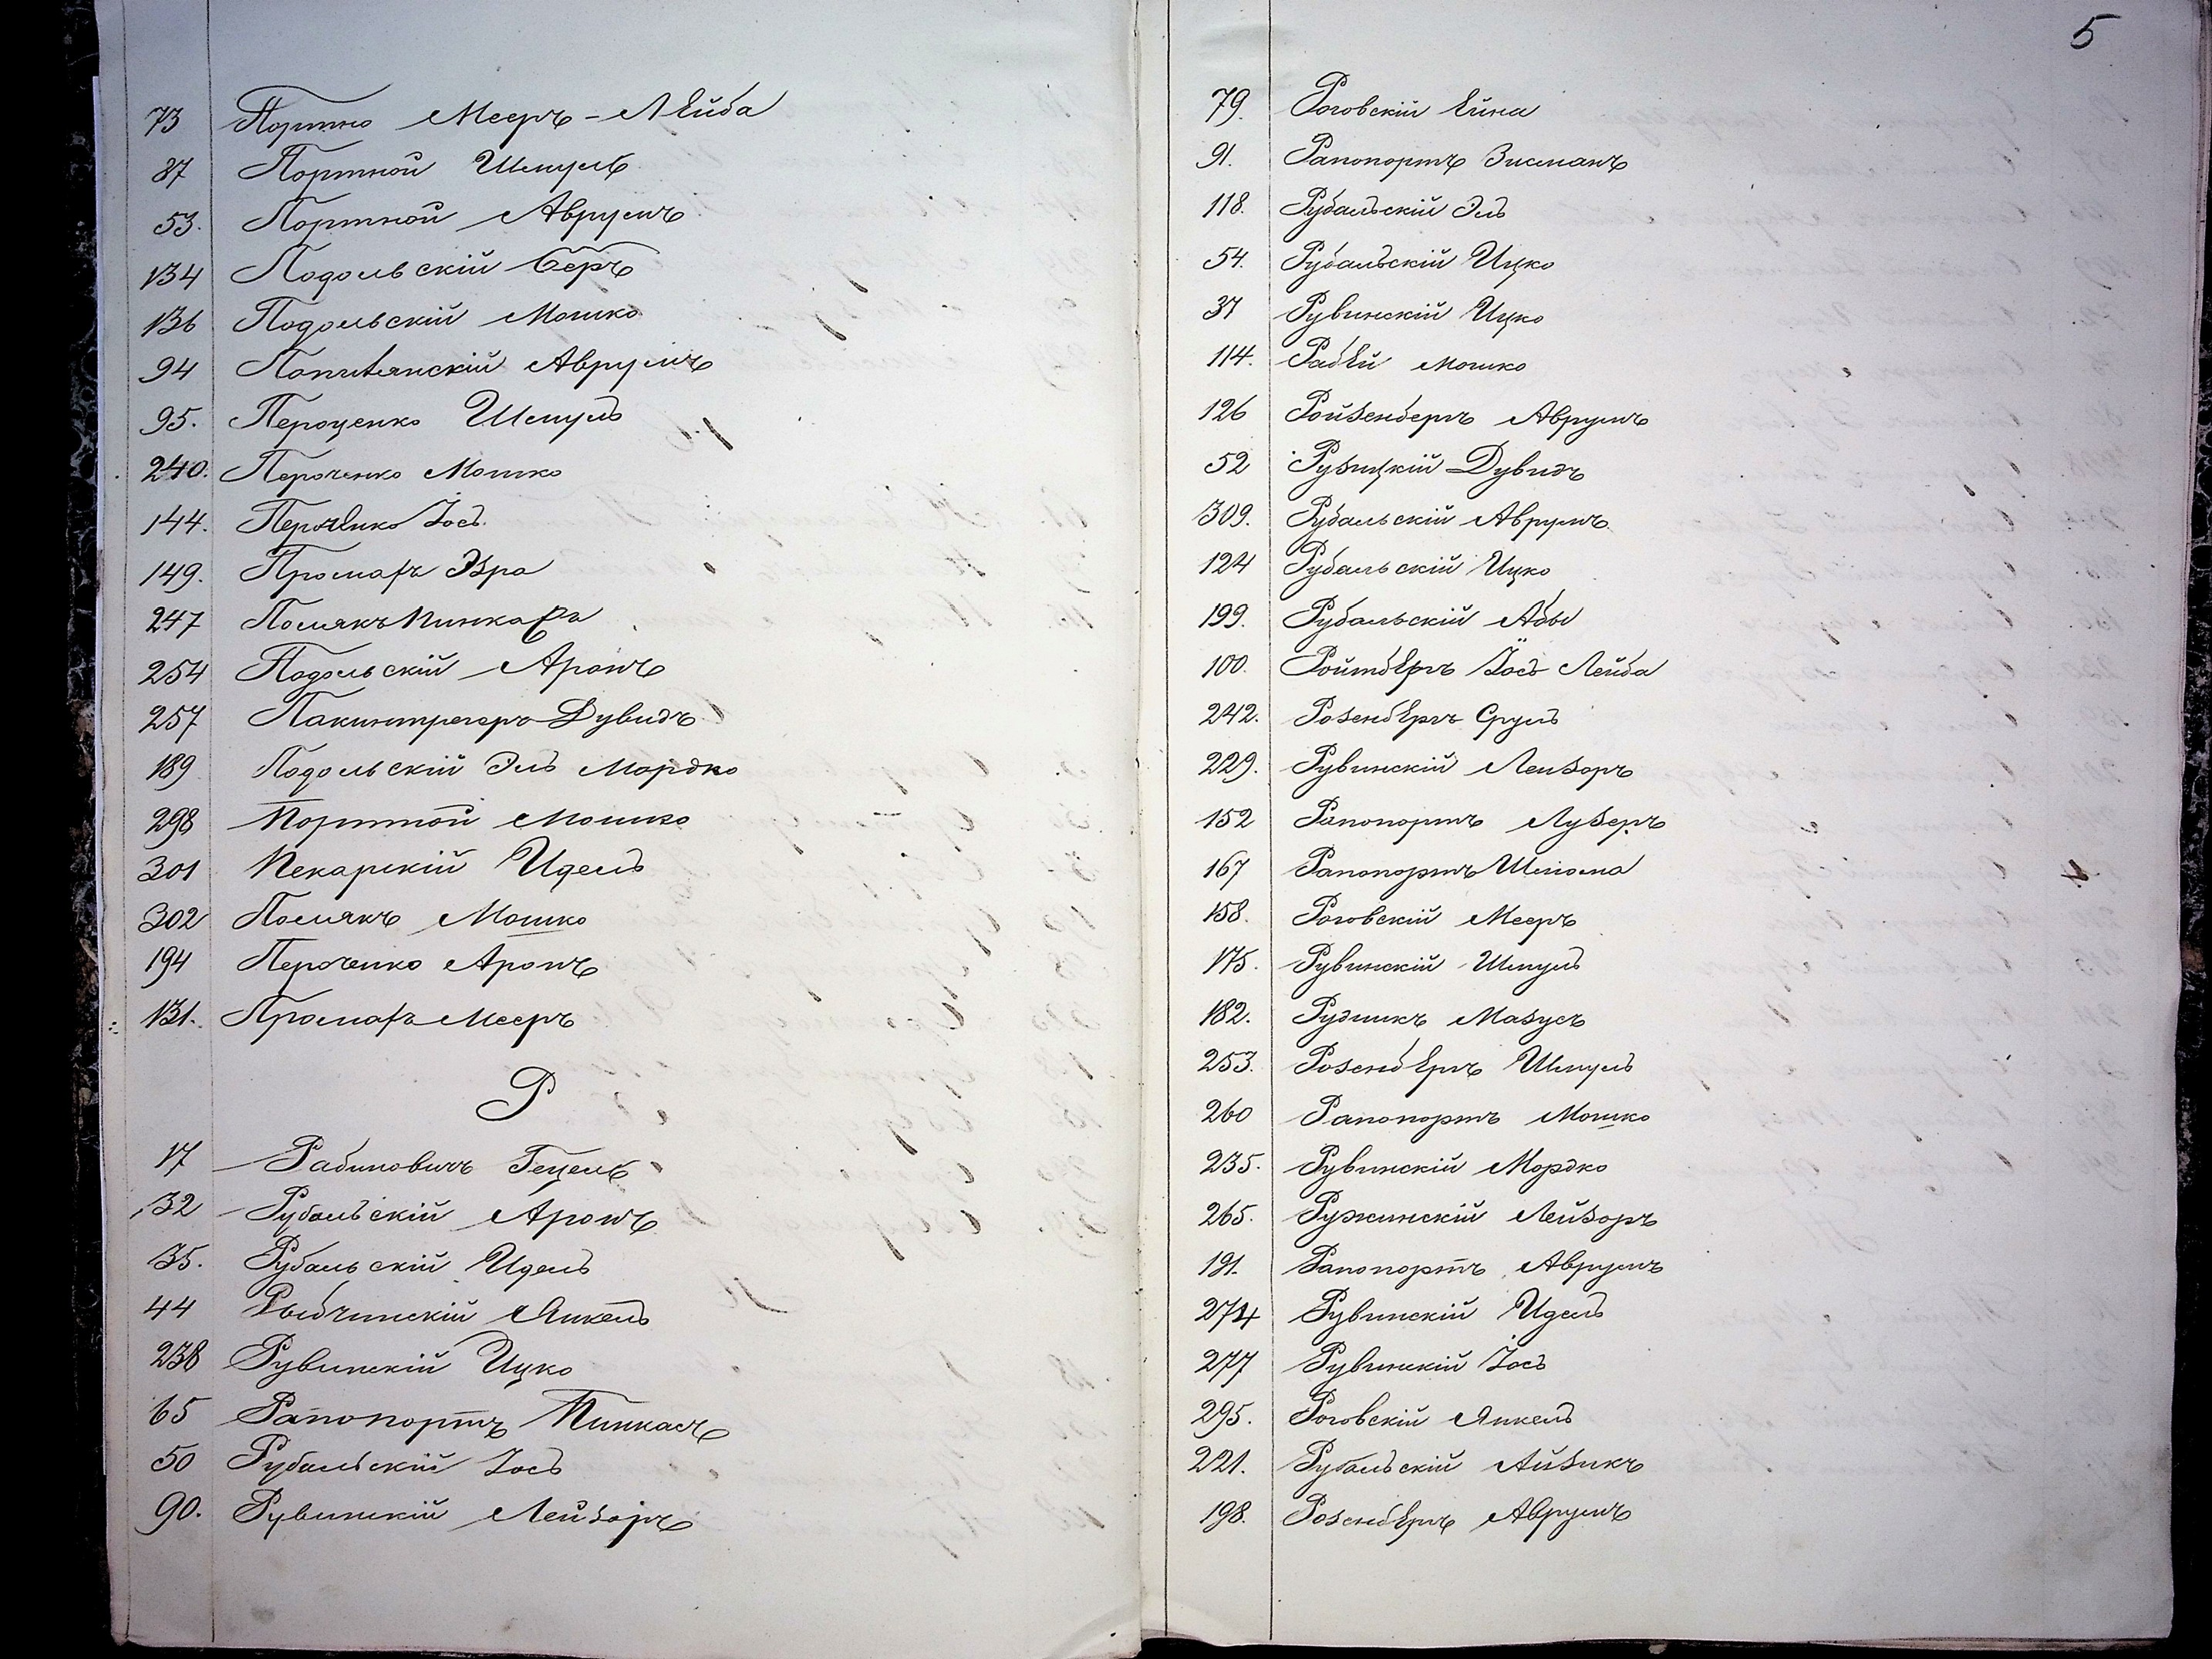 73 Портно Мееръ-Лейба
87 Портной Шмуль
53. Портной Аврумъ
134 Подольскій Беръ
136 Подольскій Мошко
94 Аврумъ
95. Пероценко Шмуль
240. Пероченко Мошко
144. Пероченко Іось
149. Эзра
247 Полякъ Пинкасъ
254 Подольскій Аронъ
257 Пакинтрегеръ Дувидъ
189 Подольскій Эль Мордко
298 Портной Мошко
301 Пекарскій Идель
302 Полякъ Мошко
194 Пероченко Аронъ
131. Мееръ
Р
17 Рабиновичъ Гецель
32 Рубальскій Аронъ
35. Рубальскій Идель
44 Рыбчинскій Янкель
238 Рувинскій Ицко
65 Рапопортъ Пинкасъ
50 Рубальскій Іось
90. Рувинскій Лейзоръ
5
79. Роговскій Ейна
91. Рапопортъ Зисманъ
118. Рубальскій Эль
54. Рубальскій Ицко
37 Рувинскій Ицко
114. Рабей Мошко
126 Ройзенбергъ Аврумъ
52 Рузицкій Дувидъ
309. Рубальскій Аврумъ
124 Рубальскій Ицко
199. Рубальскій Абы
100. Ройтбергъ Іось Лейба
242. Розенбергъ Сруль
229. Рувинскій Лейзоръ
152 Рапопортъ Лузеръ
167 Рапопортъ Шлiома
158. Роговскій Мееръ
175. Рувинскій Шмуль
182. Рудникъ Мазусъ
253. Розенбергъ Шмуль
260 Рапопортъ Мошко
235. Рувинскій Мордко
265. Ружинскій Лейзоръ
191. Рапопортъ Аврумъ
274 Рувинскій Идель
277 Рувинскій Іось
295. Роговскій Янкель
221. Рубальскій Айзикъ
198. Розенбергъ Аврумъ